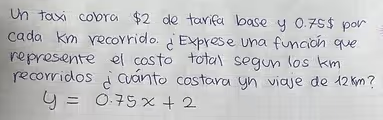 Un taxi cobra $2 de tarifa base y 0.75$ por
cada km recorrido. ¿Exprese una función que
represente el costo total segun los km
recorridos ¿cuánto costara yn viaje de 12km?
y = 0.75x + 2